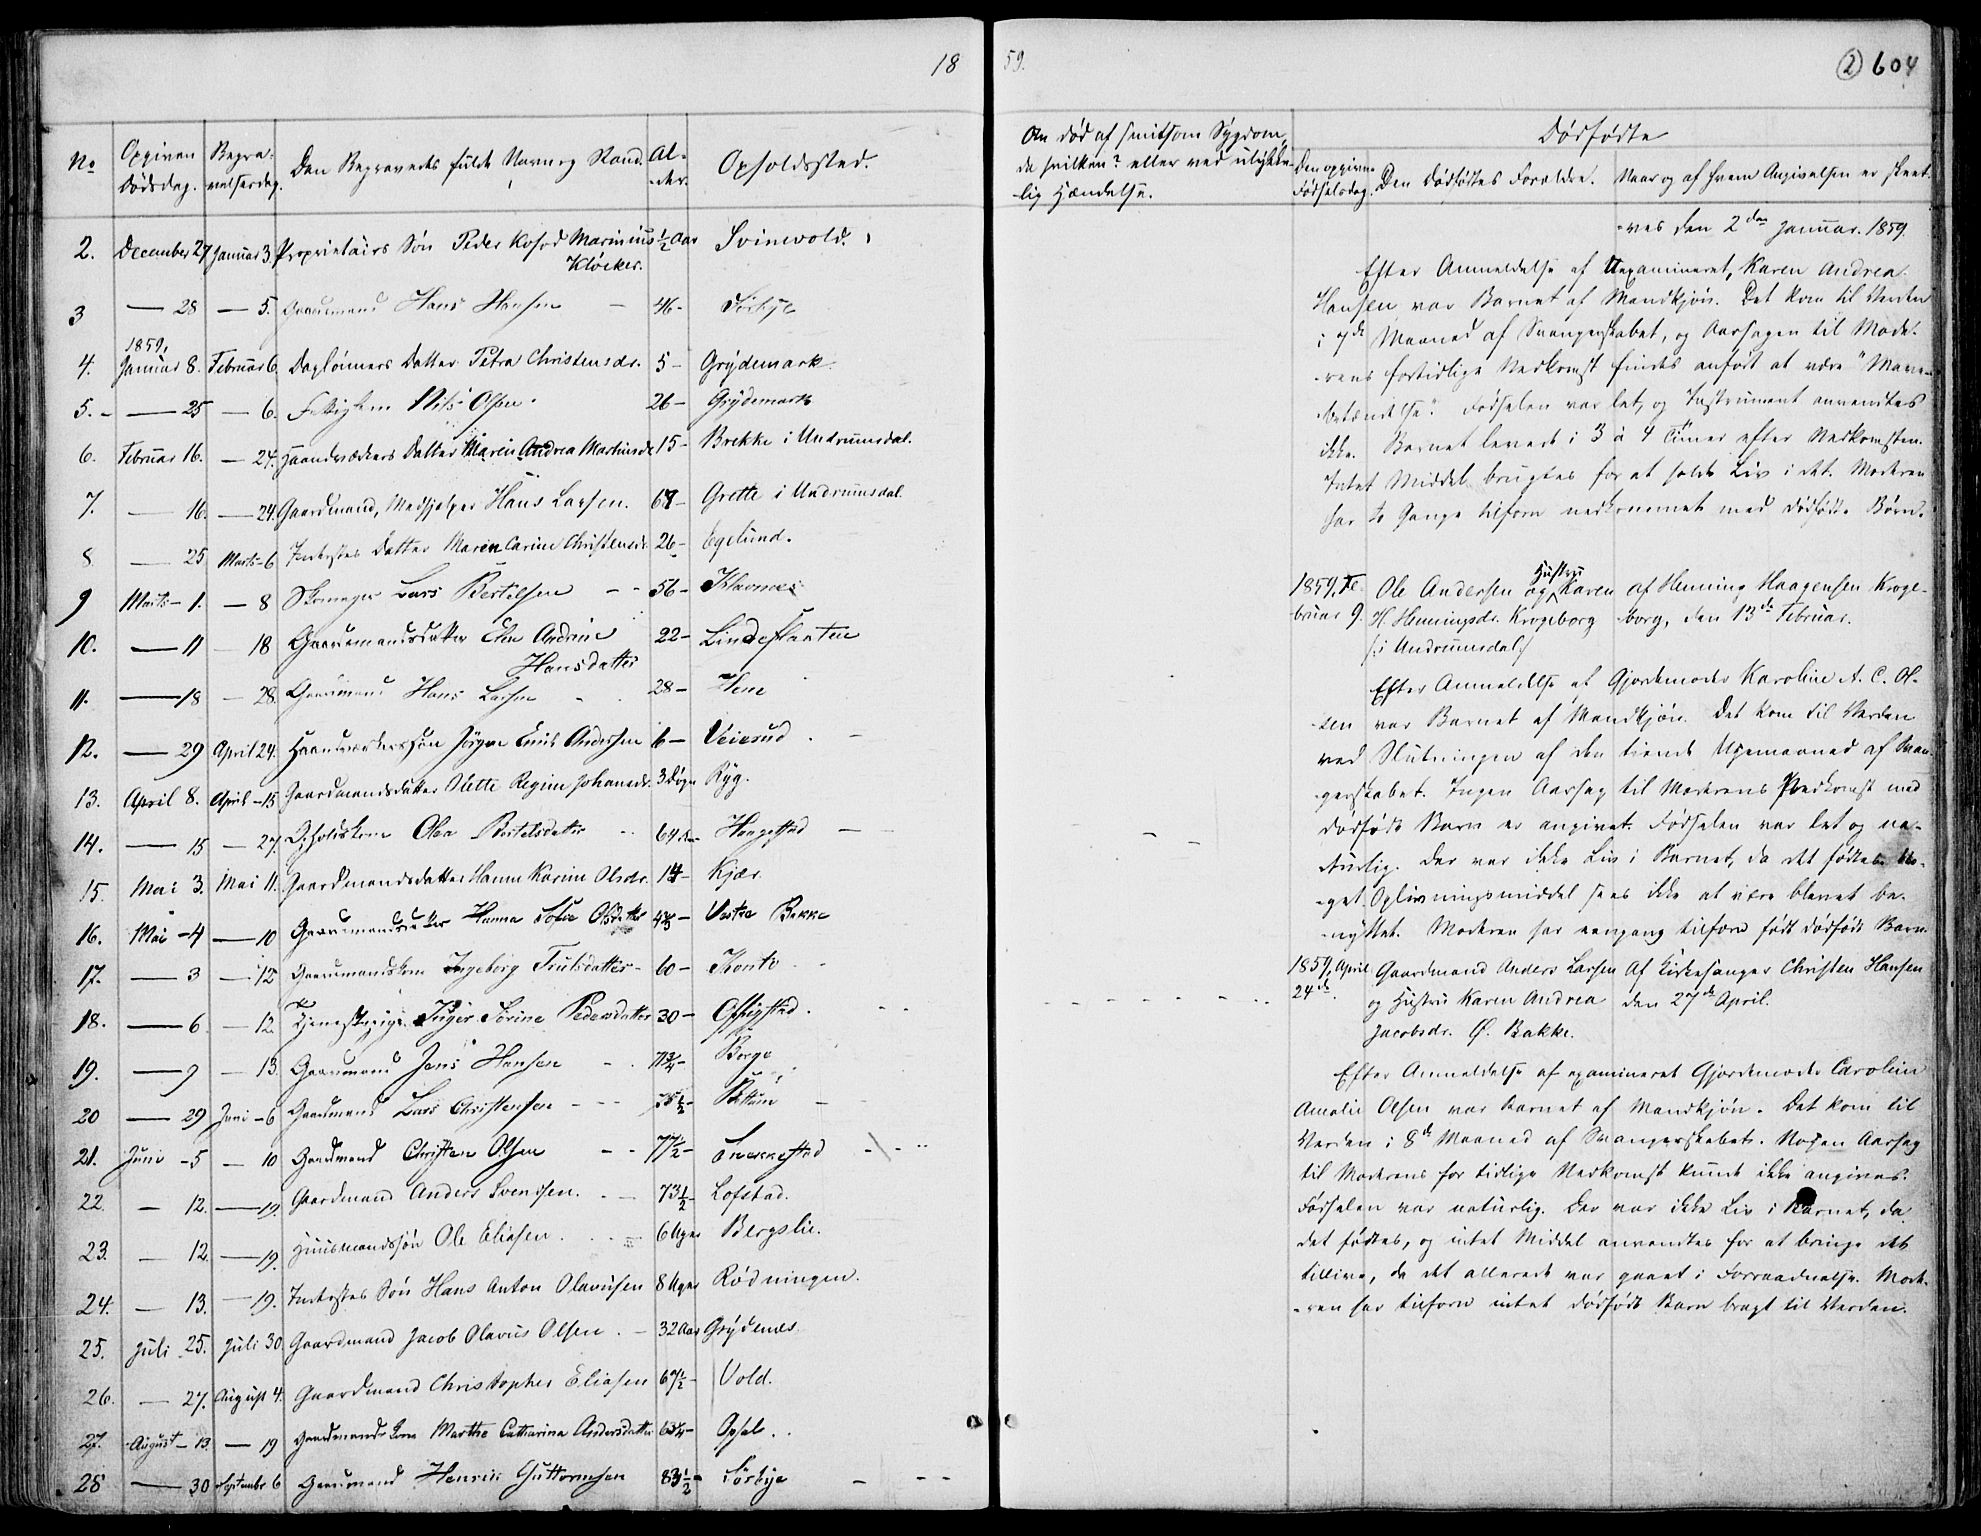 18
59.
2 604
No
Opgiven Dødsdag.
Begravelsesdag.
Den Begravedes fulde Navn og Stand.
Alder.
Opholdssted.
Om død af smitsom Sygdom,
da hvilken? eller ved ulykke-
lig Hændelse.
Dødfødte
Den opgivne Fødselsdag.
Den Dødfødtes Forældre.
Naar og af hvem Angivelsen er skeet.
2. December 27 Januar 3. Proprietairs Søn Peder Kofod Marinius Kløcker. 1/2 Aar Svinevold.
3 — 28 — 5. Gaardmand Hans Hansen 46 - Sörbye
4. 1859, Januar 8. Februar 6. Daglönners Datter Petra Christensdr. 5 - Grydemark.
5. — 25 — 6. Nils Olsen. 26 - Grydemark
6. Februar 16. — 24. Haandværkers Datter Maren Andrea Martinsdr 15 - Brekke i Undrumsdal.
7. — 16. — 24. Gaardmand, Medhjelper Hans Larsen. 69 - Grette i Undrumsdal.
8 — 25 Marts - 6 Inderstes Datter Maren Carine Christensdr. 26 - Egelund.
9 Marts - 1. — 8 Skomager Lars Bertelsen 56 - Klavenes
10. — 11 — 18 Gaardmandsdatter Andrine Hansdatter 22 -
11. — 18 — 28. Gaardmand Hans Larsen 28 - Hem
12. — 29 April 24. Haandværkerssøn Jörgen Emil Andersen 6 - Veierud.
13. April 8. April - 15 Gaardmandsdatter Olette Regine Johansdr. 3 Døgn Ryg.
14. — 15 — 27. Olea Bertelsdatter 64 Haugestad
15. Mai 3. Mai 11. Gaardmandsdatter Hanna Karine Olsdr. 14 - Kjær.
16. Mai - 4 — 10 Gaardmandsdatter Hanna Sofie Olsdatter Vestre Bakke
17. — 3 — 12 Gaardmandskone Ingeborg Trulsdatter - 60 -
18. — 6 — 12 Tjenestepige Inger Sorine Pedersdatter 30 -
19. — 9 — 13. Gaardmand Jens Hansen Borge
20 — 29 Juni - 6 Gaardmand Lars Christensen
21. Juni - 5 — 10 Gaardmand Christen Olsen 77 1/2 - Snekkestad
22. — 12. — 19. Gaardmand Anders Svendsen. 73 1/2 - Lofstad.
23. — 12. — 19. Huusmandssøn Ole Eliasen. 6 Uger Bergslie.
24. — 13. — 19. Inderstes Søn Hans Anton Olavusen 8 Uger Rødningen.
25. Juli 25. Juli 30. Gaardmand Jacob Olavus Olsen. - 32 Aar Grydenes.
26. — 27. August 4. Gaardmand Christopher Eliasen Vold.
27. August - 13 — 19 Gaardmands Kone Marthe Catharina Andersdatter Opsal.
28 — 30 September 6 Gaardmand Henrik Guttormsen 83 1/2 - Sörbye
-ves den 2den Januar. 1859.
Efter Anmeldelse af Uexamineret, Karen Andrea
Hansen var Barnet af Mandkjøn. Det kom til Verden
i 7de Maaned af Svangerskabet, og Aarsagen til Mode-
rens fortidlige Nedkomst findes anført at være "Mave-
betændelse". Fødselen var let, og Instrument anvendtes
ikke. Barnet levede i 3 à 4 Timer efter Nedkomsten.
Intet Middel brugtes for at holde Liv i det. Moderen
har to Gange tilforn nedkommet med dødfødte Børn.
1859, Fe-
bruar 9.
Ole Andersen og Hustru Karen
H. Henningsdr. Krogeborg
/: i Undrumsdal :/
af Henning Haagensen Kroge-
borg, den 13de Februar.
Efter Anmeldelse af Gjordemoder Karoline A. C. Ol-
sen var Barnet af Mandkjøn. Det kom til Verden
ved Slutningen af den tiende Ugemaaned af Svan-
gerskabet. Ingen Aarsag til Moderens Nedkomst med
dødfødt Barn er angivet. Fødselen var let og na-
turlig. Der var ikke Liv i Barnet, da det fødtes. No-
get Oplivningsmiddel sees ikke at være blevet be-
nyttet. Moderen har eengang tilforn født dødfødt Barn.
1859, April
24de.
Gaardmand Anders Larsen
og Hustru Karen Andrea
Jacobsdr. Ø. Bakke.
Af Kirkesanger Christen Hansen
den 27de April.
Efter Anmeldelse af examineret Gjordemoder Caroline
Amalie Olsen var Barnet af Mandkjøn. Det kom til
Verden i 8de Maaned af Svangerskabet. Nogen Aarsag
til Moderens for tidlige Nedkomst kunde ikke angives.
Fødselen var naturlig. Der var ikke Liv i Barnet, da
det fødtes, og intet Middel anvendtes for at bringe det
tillive, da det allerede var gaaet i Forraadnelse. Mode-
ren har tilforn intet dødfødt Barn bragt til Verden.